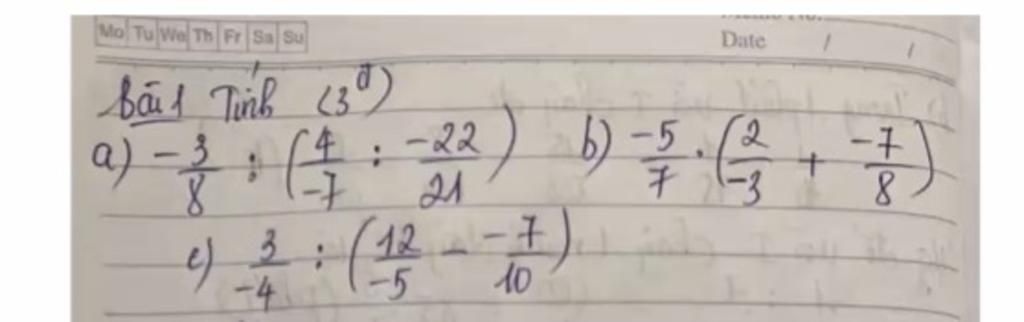 Mo Tu We Th Fr Sa Su
Date / /
Bài 1 Tính (3đ)
a) -3/8 : (4/-7 : -22/21) b) -5/7 . (2/-3 + -7/8)
c) 3/-4 : (12/-5 - -7/10)